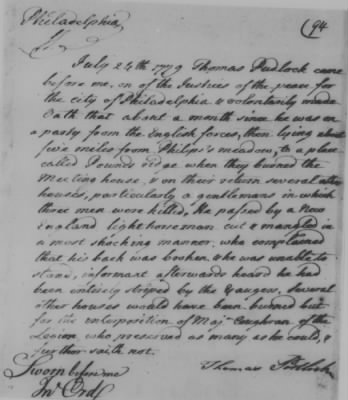 Philadelphia
94
ss.
July 24th 1779 Thomas Pudlock came
before me, on of the Justices of the peace, for
the city of Philadelphia & volontarily made
Oath that about a month since he was on
a party from the English forces, then lying about
five miles from Philips's meadow, to a place
called Pounds ridge when they burned the
Meeting house, & on their return several other
houses, particularly a gentlemans in which
three men were killed, he passed by a New
England light horseman cut & mangled in
a most shocking manner, who complained
that his back was broken, & he was unable to
stand, informant afterwards heard he had
been entirely striped by the Yaugers, several
other houses would have been burned but
for the interposition of Majr Coughran of the
Legion who preserved as many as he could, &
further saith not.
Sworn before me Thomas Pudlock
Jno Ord